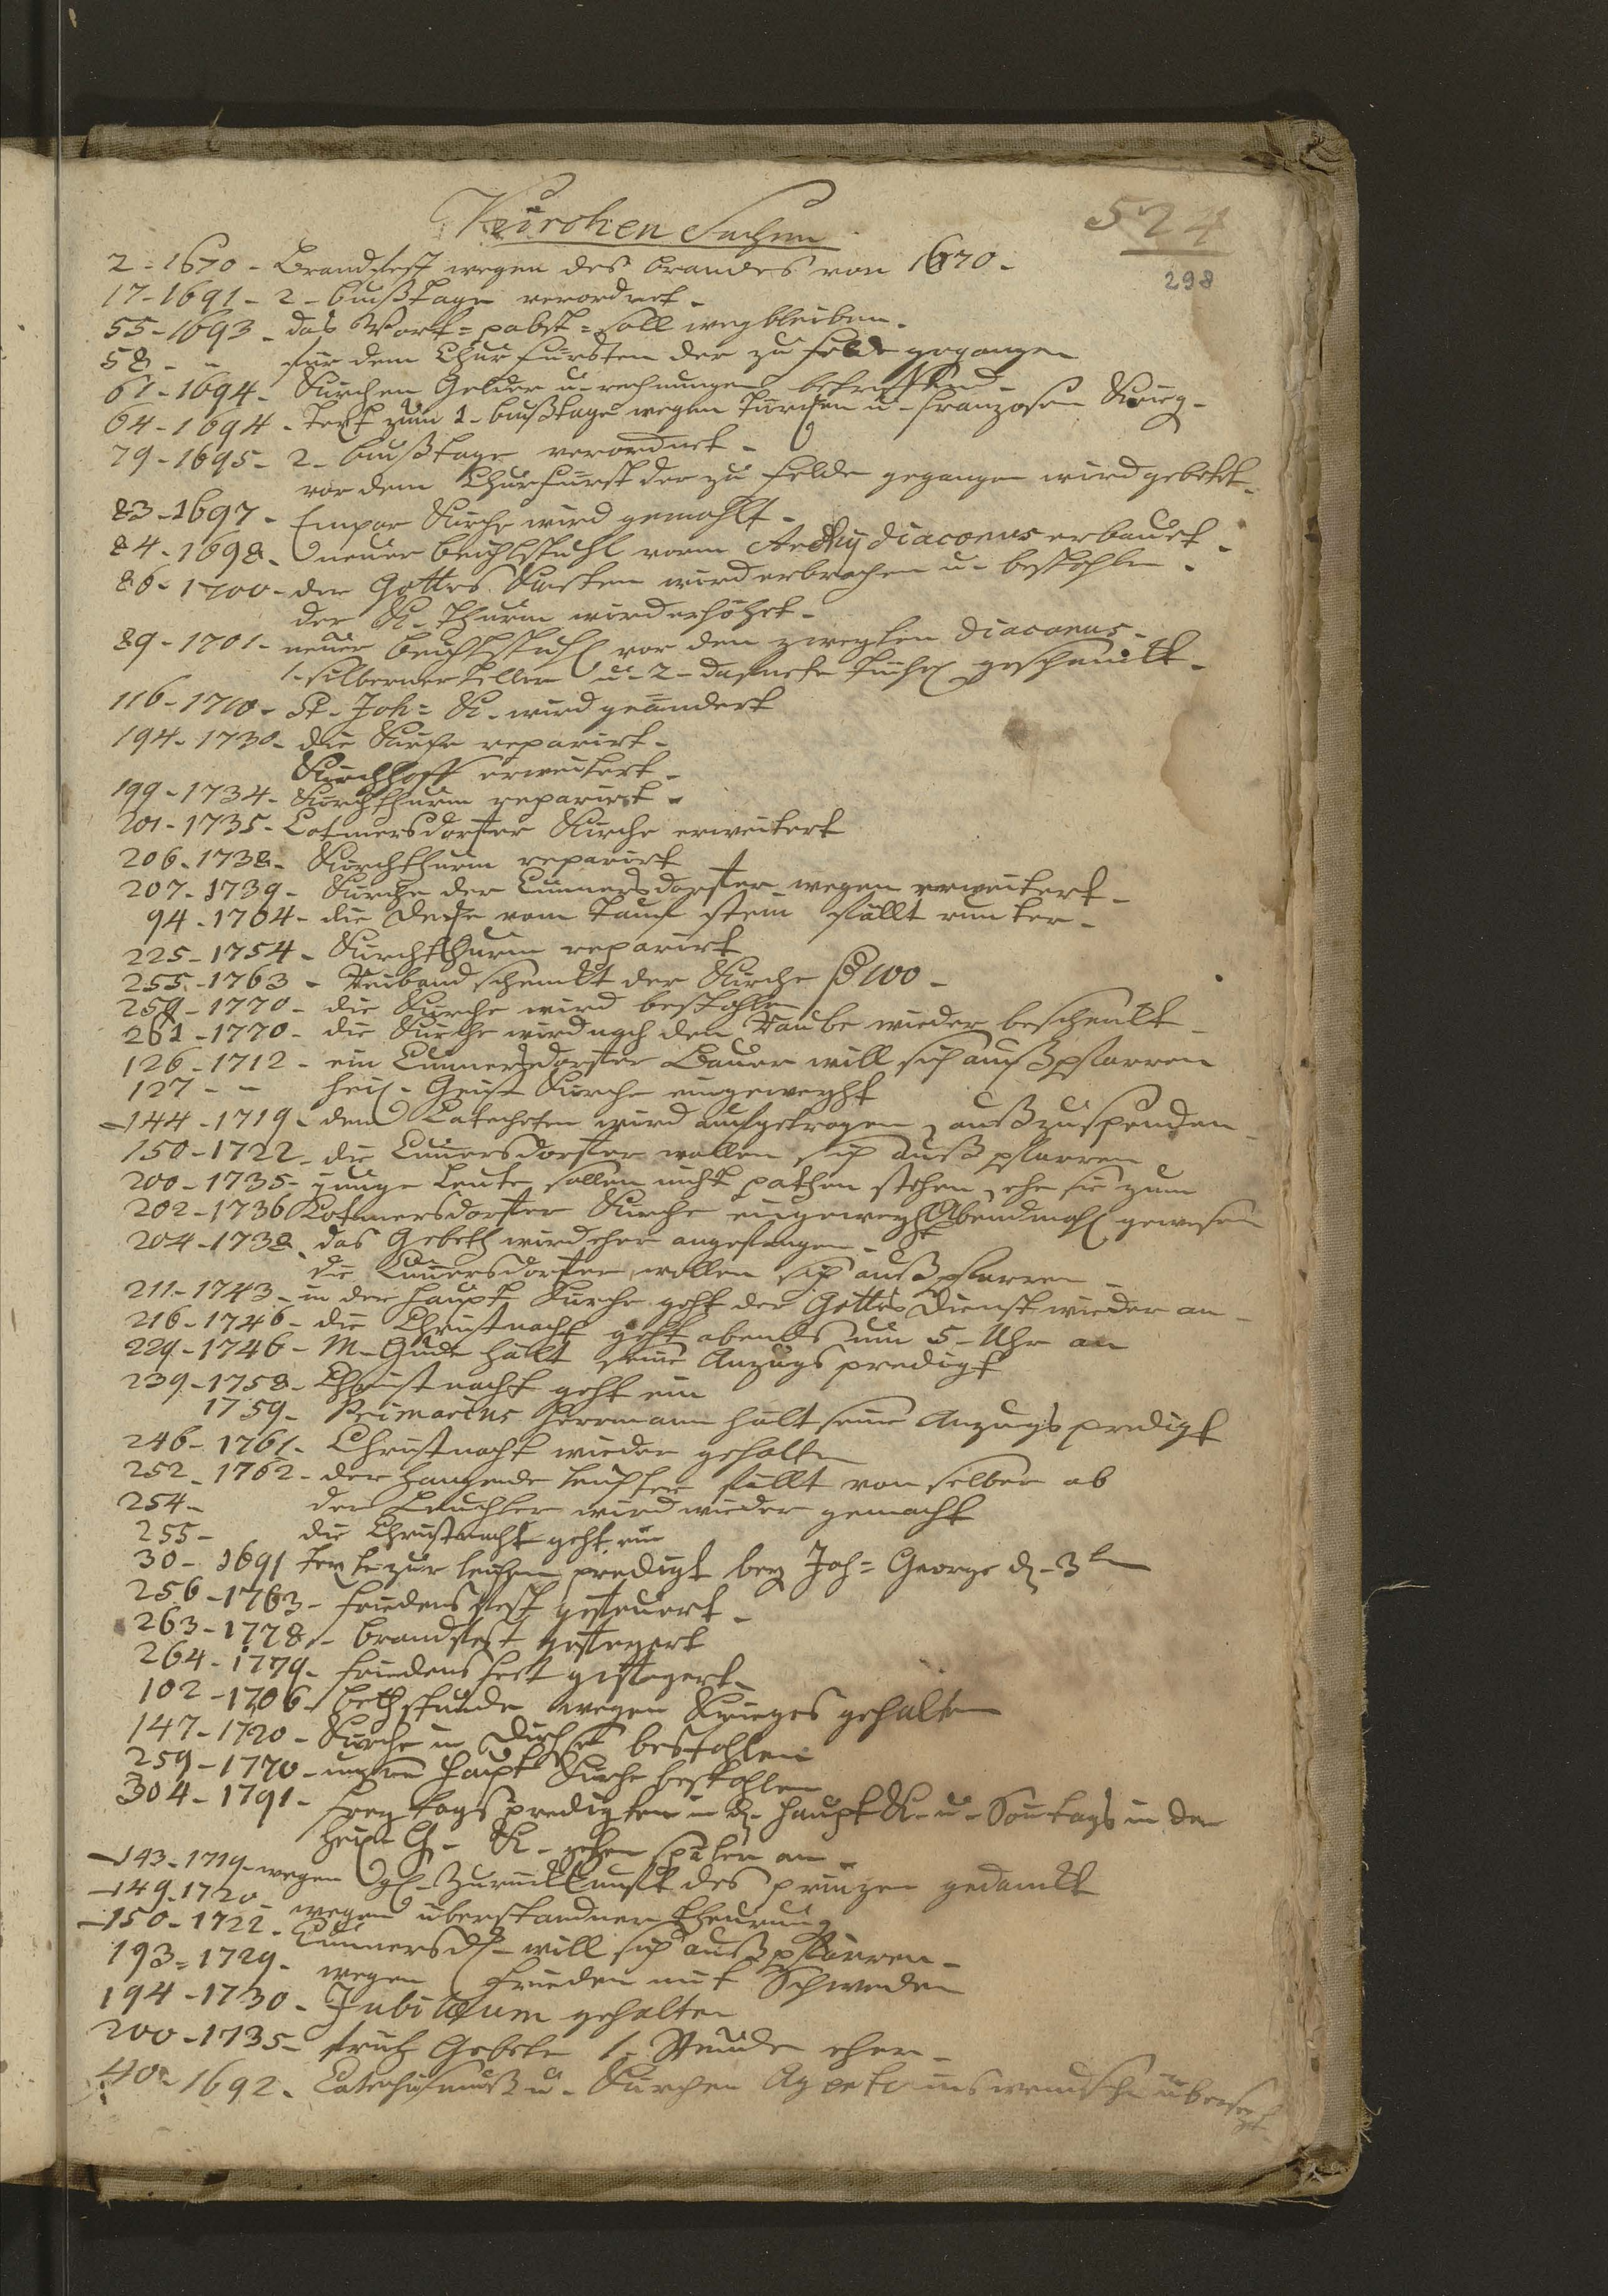 Kirchen Sachen
524
298
2 - 1670 - Brandfest wegen des brandes von 1670 -
17 - 1691 - 2 - bußtage verordnet -
55 - 1693 - das Wort = pabst = soll wegbleiben.
58 - - für dem Churfürsten der zu felde gegangen
61 - 1694 - Kirchen Gelder u - rechnungen betreffend -
64 - 1694 - text zum 1 - bußtage wegen türcken u - franzosen Krieg -
79 - 1695 - 2 - bußtage verordnet -
vor dem Churfürst der zu felde gegangen wird gebetet -
83 - 1697 - Empor Kirche wird gemahlt -
84 - 1698 - neuer beichtstuhl vorm Archy diaconus erbauet -
86 - 1700 - der Gottes Kasten wird erbrochen u - bestohlen -
der K - thurm wird erhöhet -
89 - 1701 - neuer beichtstuhl vor den zweyten Diaconus -
1 - silberner teller u - 2 - tücher geschenckt -
116 - 1710 - St - Joh = K - wird geändert
194 - 1730 - die Kirche reparirt -
Kirchhoff erweitert -
199 - 1734 - Kirchthurm reparirt -
201 - 1735 - Cotmersdorfer Kirche erweitert
206 - 1738 - Kirchthurm reparirt
207 - 1739 - Kirche der Cunnersdorfer wegen erweitert -
94 - 1704 - die decke vom Tauf stein fällt runter -
225 - 1754 - Kirchthurm reparirt
255 - 1763 - schenckt der Kirche 100 -
259 - 1770 - die Kirche wird bestohlen
261 - 1770 - die Kirche wird nach dem Raube wieder beschenckt -
126 - 1712 - ein Cunnersdorfer Bauer will sich außpfarren
127 - - heil - Geist Kirche eingeweyht
- 144 - 1719 - dem Catecheten wird aufgetragen außzuspenden -
150 - 1722 - die Cunersdorfer wollen sich außpfarren
200 - 1735 - junge Leute sollen nicht pathen stehen, ehe sie zum
202 - 1736 Cotmersdorfer Kirche eingeweyht Abendmahl gewesen
204 - 1738 - das Gebeth wird eher angefangen -
die Cunersdorfer wollen sich außpfarren -
211 - 1743 - in der haupt Kirche geht der Gottes dienst wieder an -
216 - 1746 - die Christnacht geht abends um 5 - Uhr an
229 - 1746 - M - Gude hält seine Anzugs predigt
239 - 1758 - Christnacht geht ein
1759 - Primarius Herrmann hält seine Anzugs predigt
246 - 1761 - Christnacht wieder gehalten
252 - 1762 - der hangende leuchter fällt von selber ab
254 - der Leuchter wird wieder gemacht
255 - die Christnacht geht ein
30 - 1691 texte zur leichen predigt bey Joh = George d - 3t
256 - 1763 - friedens fest gefeuert -
263 - 1778 - brandfest gefeyert
264 - 1779 - friedens fest gefeyert -
102 - 1706 - bethstunde wegen Krieges gehalten
147 - 1720 - Kirche in bestohlen
259 - 1770 - unsre Haupt Kirche bestohlen
304 - 1791 - freytags predigten in d - haupt K - u - Sontags in der
heil - G - K - gehen später an -
- 143 - 1719 - wegen zurückkunft des prinzen gedanckt
- 149 - 1720 - wegen überstandner theurung
- 150 - 1722 - Cunnersd - will sich außpfarren -
193 = 1729 - wegen Frieden mit Schweden
194 - 1730 - Jubilæum gehalten
200 - 1735 - früh Gebete 1 - Stunde eher -
40 - 1692 - Catechismuß u - Kirchen Agenta ins wendsche übersezt